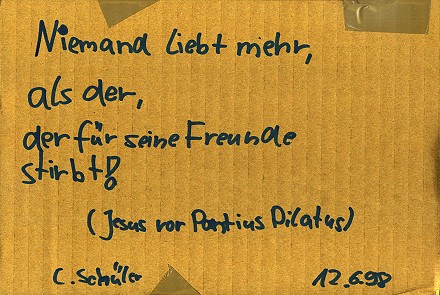 Niemand liebt mehr,
als der,
der für seine Freunde
stirbt!
(Jesus vor Pontius Pilatus)
C. Schüler 12.6.98